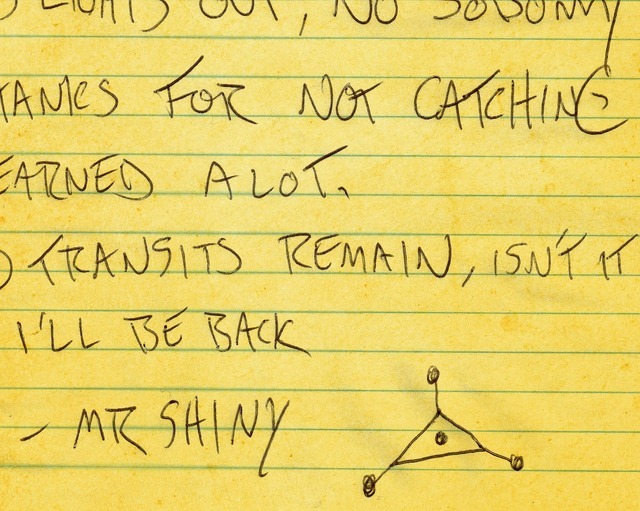 LIGHTS OUT, NO SODOMY
TANKS FOR NOT CATCHING
EARNED A LOT.
TRANSITS REMAIN, ISN'T IT
I'LL BE BACK
- MR SHINY